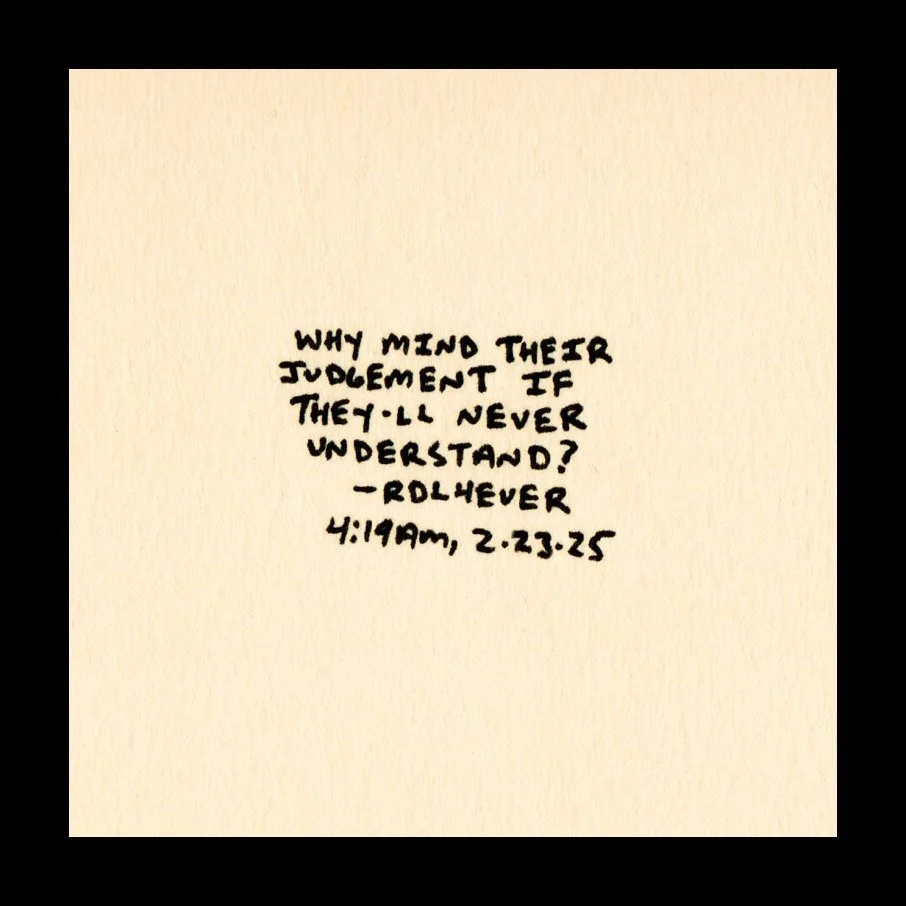 WHY MIND THEIR
JUDGEMENT IF
THEY·LL NEVER
UNDERSTAND?
-RDL4EVER
4:19AM, 2·23·25